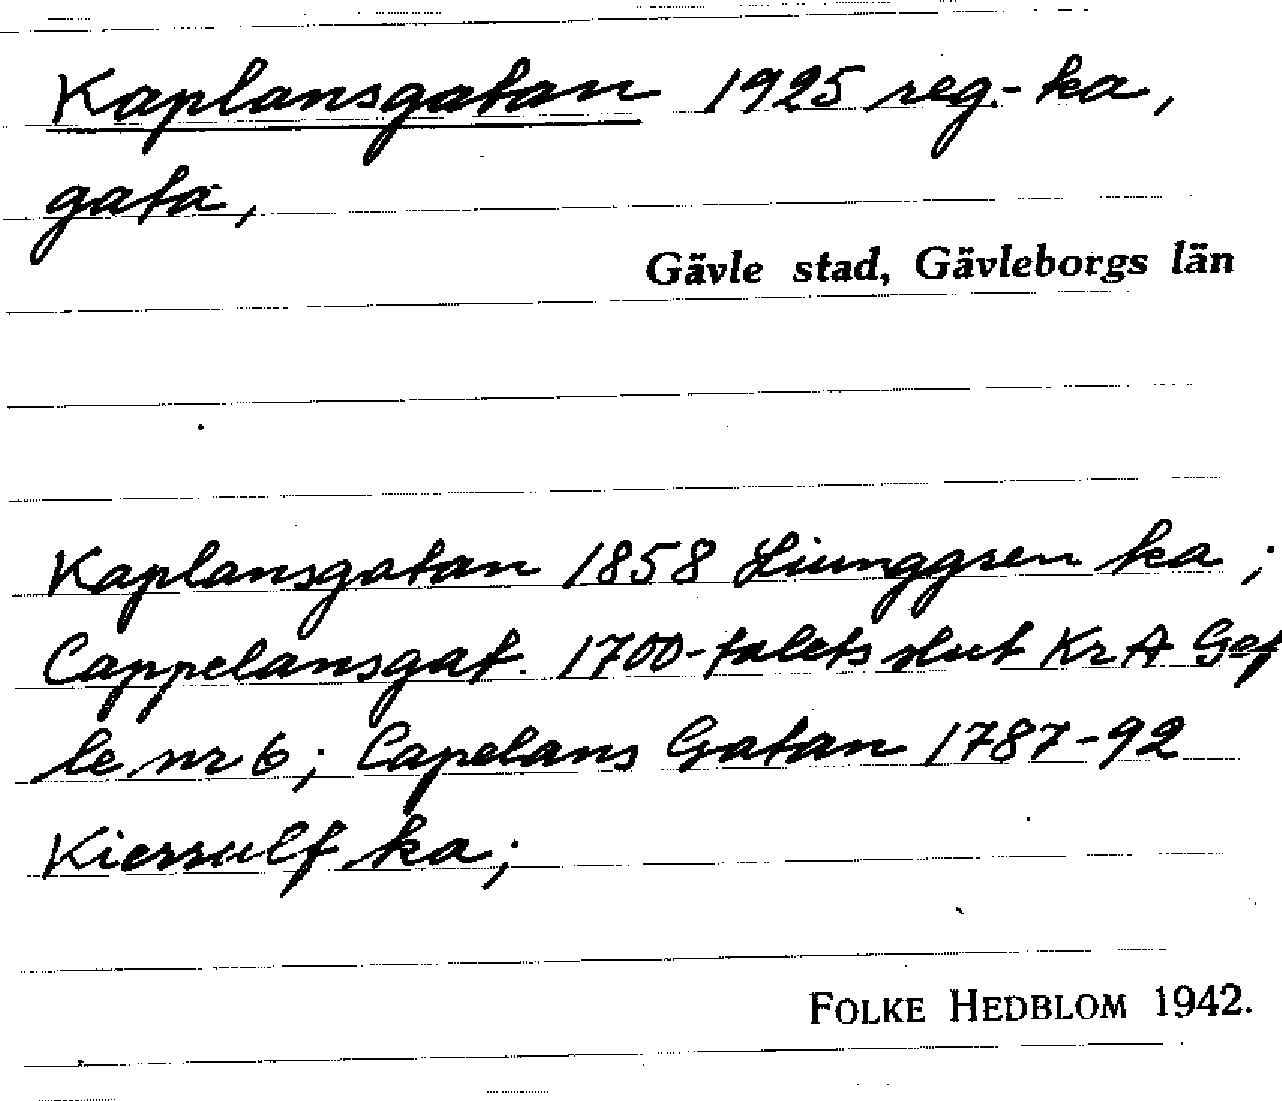 Kaplansgatan 1925 reg.-ka,
gata,
Gävle stad, Gävleborgs län
Kaplansgatan 1858 Liunggren ka;
Cappelansgat. 1700-talets slut KrA Gef
le nr 6; Capelans Gatan 1787-92
Kierrulf ka;
FOLKE HEDBLOM 1942.